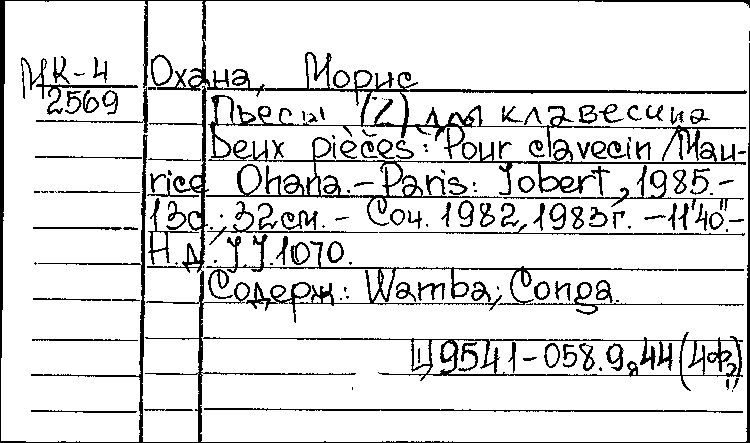 МК-4 Охана, Морис
2569 Пьесы (2) для клавесина
Deux pièces: Pour clavecin / Mau-
rice Ohana. - Paris: Jobert, 1985. -
13с.; 32см. - Соч. 1982, 1983г. - 11'40". -
Н.д. J.J.1070.
Содерж.: Wamba; Conga.
Щ9541-058.9я44(4Фр)